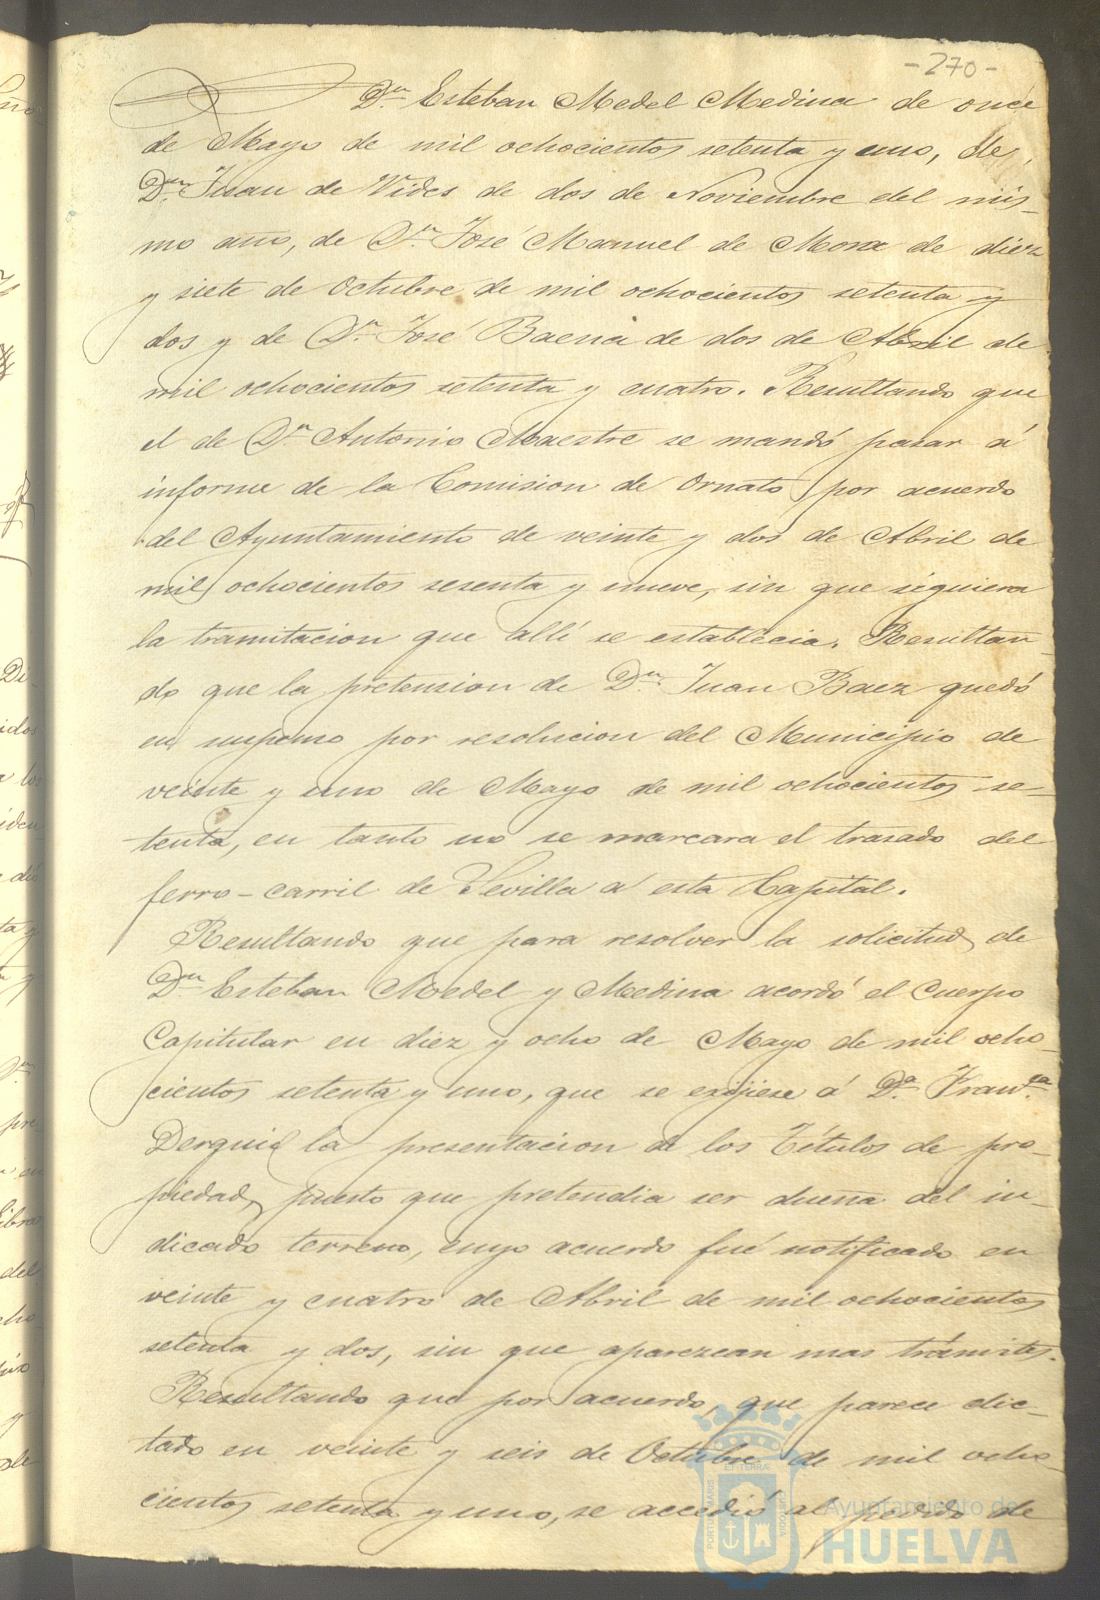 -270-
Dn. Esteban Medel Medina de once
de Mayo de mil ochocientos setenta y uno, de
Dn. Juan de Vides de dos de Noviembre del mis-
mo año, de Dn. José Manuel de Mora de diez
y siete de Octubre de mil ochocientos setenta y
dos y de Dn. José Baena de dos de Abril de
mil ochocientos setenta y cuatro. Resultando que
el de Dn. Antonio Maestre se mandó pasar á
informe de la Comision de Ornato por acuerdo
del Ayuntamiento de veinte y dos de Abril de
mil ochocientos sesenta y nueve, sin que siguiera
la tramitacion que allí se establecia. Resultan-
do que la pretension de Dn. Juan Baez quedó
en suspenso por resolucion del Municipio de
veinte y uno de Mayo de mil ochocientos se-
tenta, en tanto no se marcara el trazado del
ferro-carril de Sevilla a esta Capital.
Resultando que para resolver la solicitud de
Dn. Esteban Medel y Medina acordó el Cuerpo
Capitular en diez y ocho de Mayo de mil ocho-
cientos setenta y uno, que se exijiese á Da. Franca.
Derqui la presentacion de los Títulos de pro-
piedad, puesto que pretendia ser dueña del in-
dicado terreno, cuyo acuerdo fué notificado en
veinte y cuatro de Abril de mil ochocientos
setenta y dos, sin que aparezcan mas trámites.
Resultando que por acuerdo, que parece dic-
tado en veinte y seis de Octubre de mil ocho-
cientos setenta y uno, se accedió al pedido de
Ayuntamiento de
HUELVA